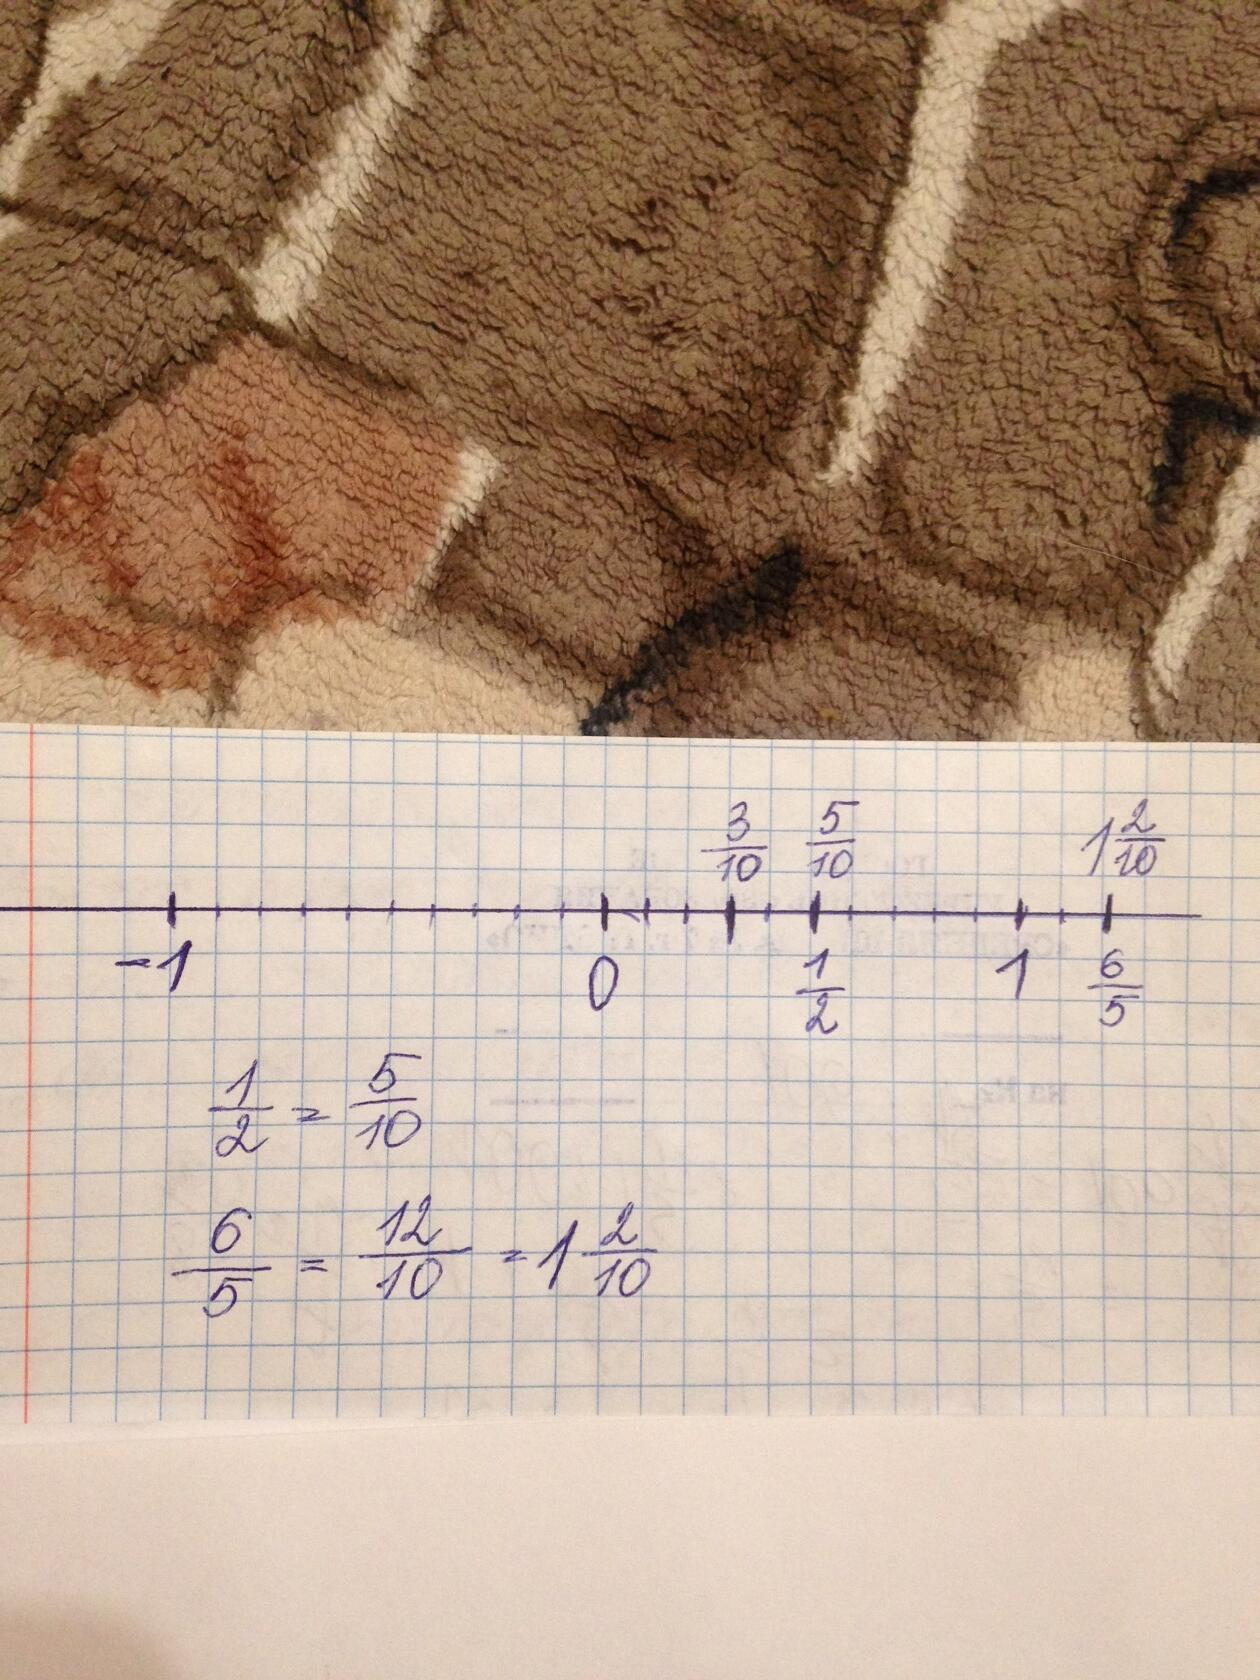 3/10 5/10 1 2/10
-1 0 1/2 1 6/5
1/2 = 5/10
6/5 = 12/10 = 1 2/10